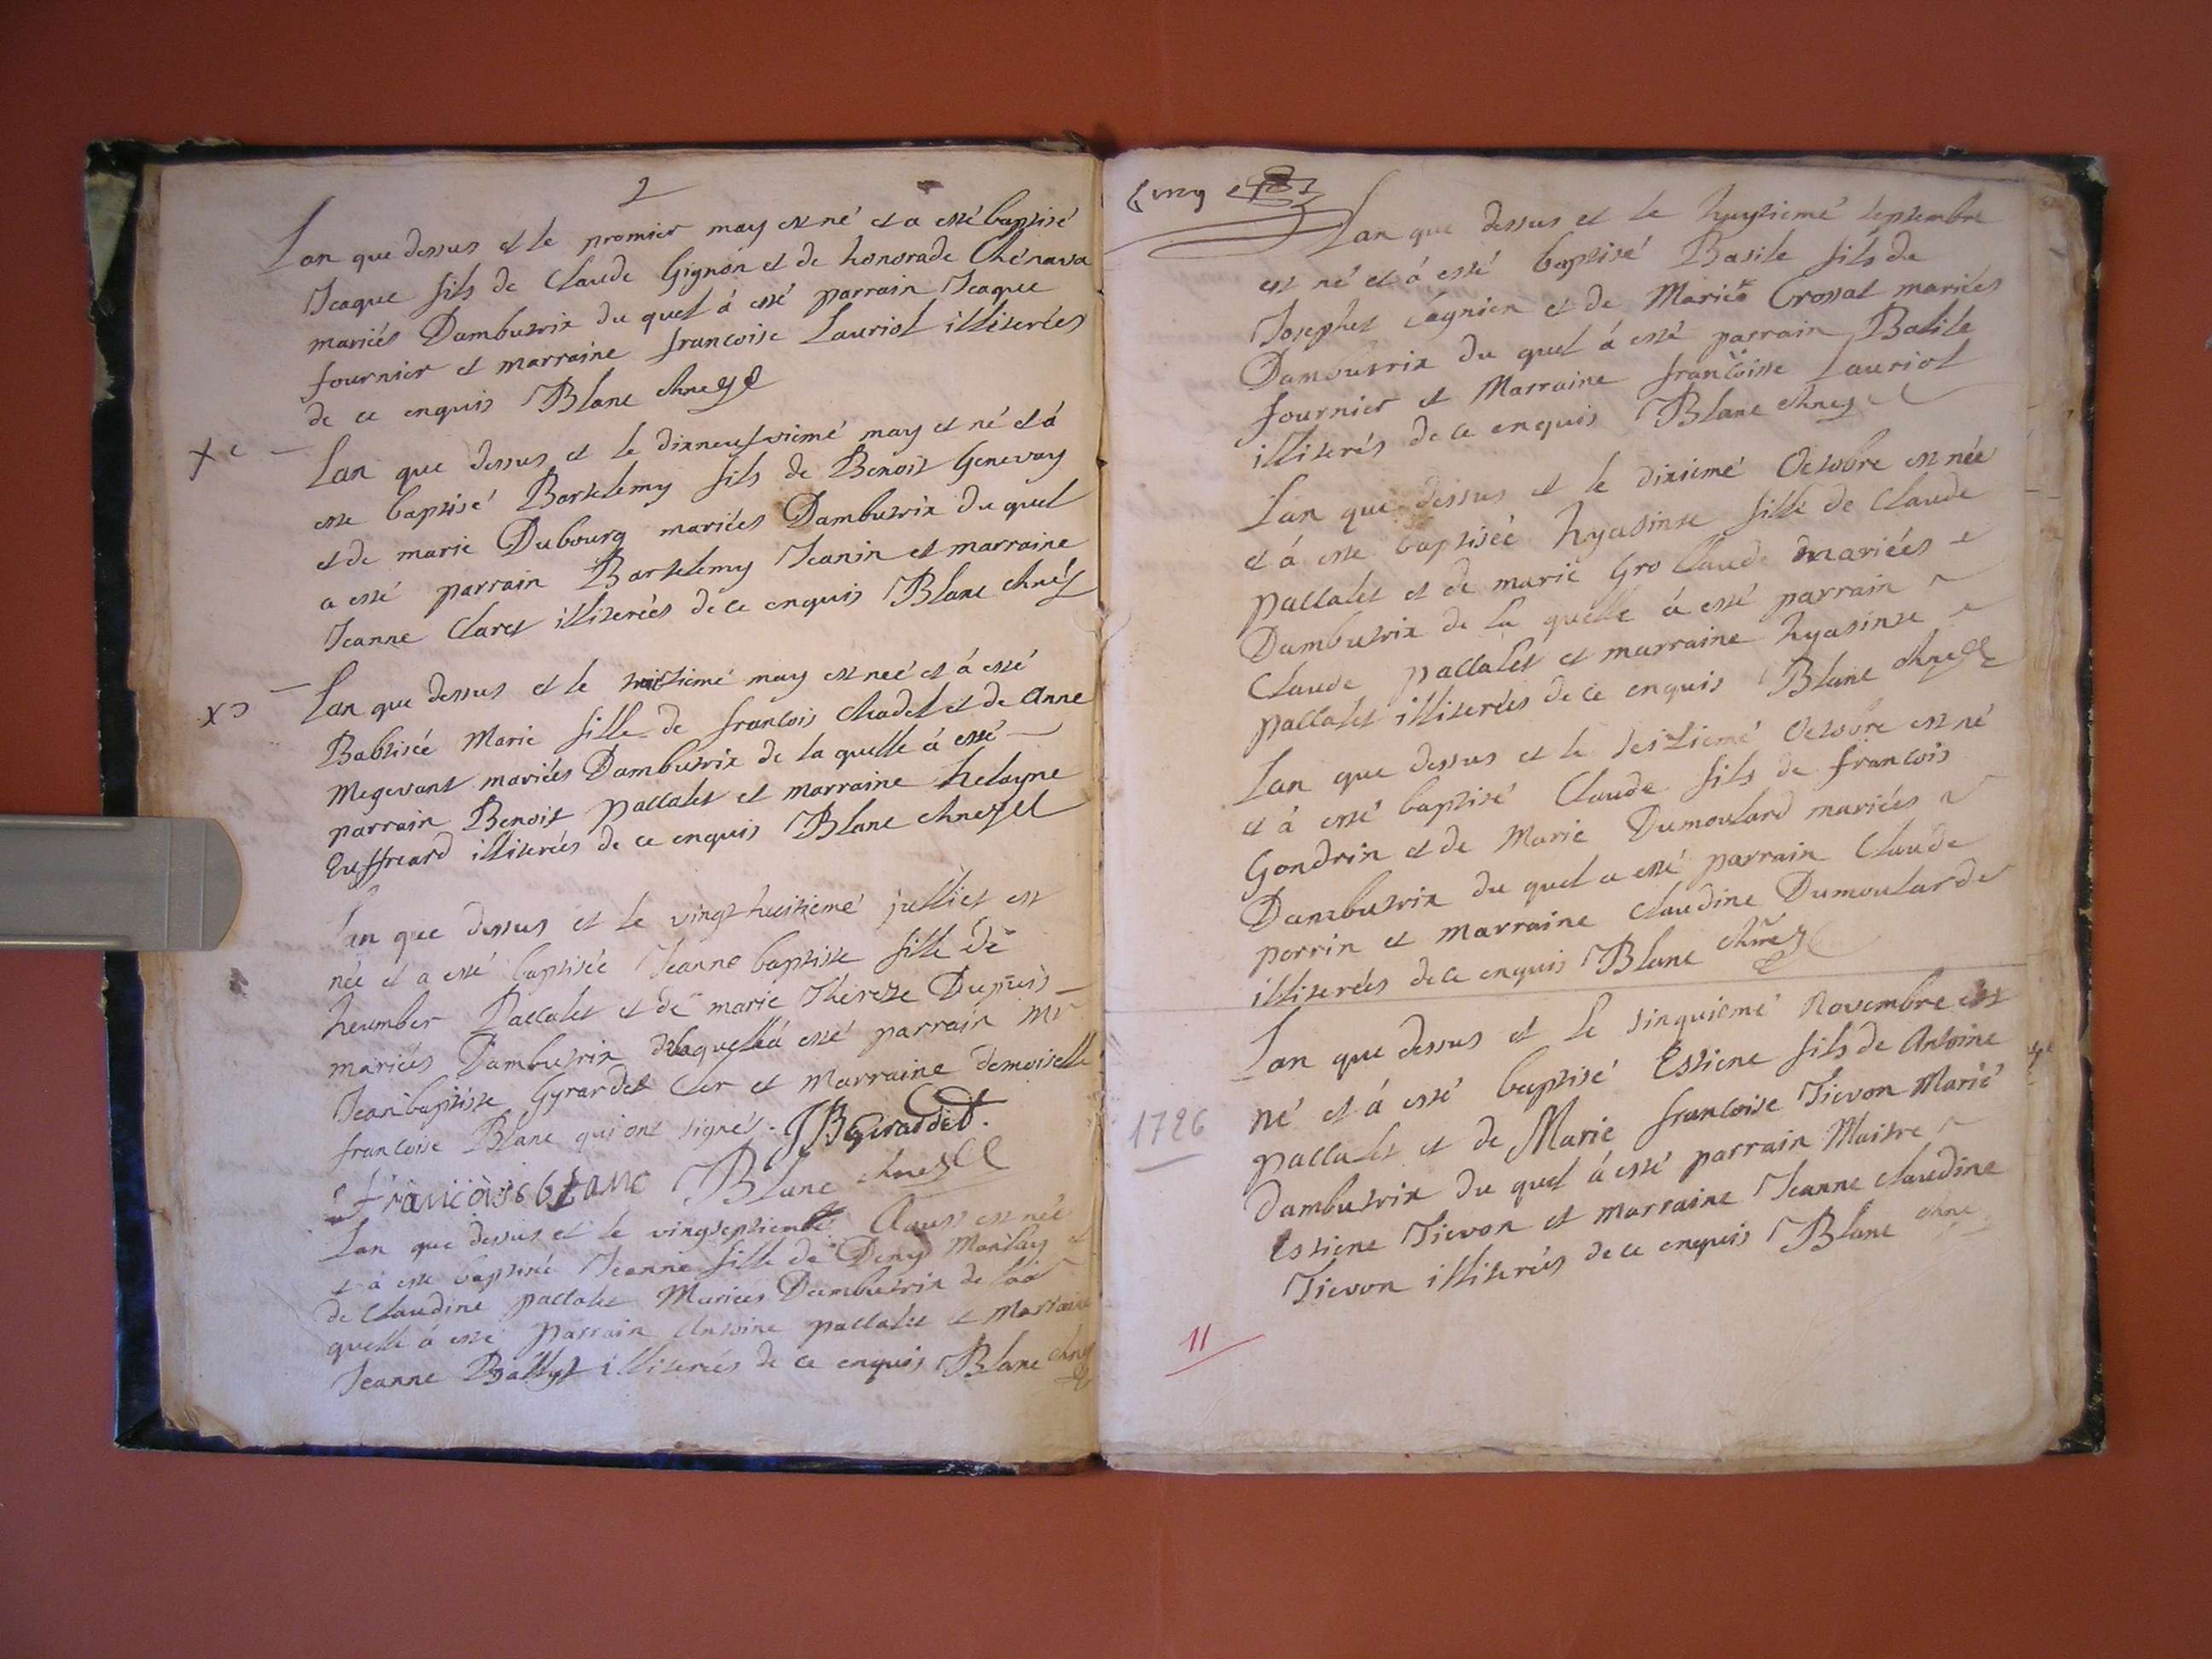 2
Lan que dessus et le premier may est né et a esté baptisé
Jcaque fils de Claude Gignon et de honorade Chénava
mariés Dambutrix du quel á esté parrain Jcaque
fournier et marraine francoise Lauriot illiterées
de ce enquis Blanc chne
Lan que dessus et le dixneufviemé may et né et á
este baptisé Bartelemy fils de Benoit Genevay
et de marie Dubourg mariées Dambutrix du quel
a esté parrain Bartelemy Jeanin et marraine
Jeanne Claret illiterées de ce enquis Blanc chne
Lan que dessus et le may est neé et á esté
Babtisée Marie fille de francois chadel et de Anne
Megevant mariées Dambutrix de la quelle á esté
parrain Benoit pallalet et marraine helayne
Euffreard illiterées de ce enquis Blanc chne
Lan que dessus et le vingt huitiemé julliet est
née et a esté baptisée Jeanne baptiste fille de
heumber Pallalet et de marie Therezze Dupuis
mariées Dambutrix delaquelle á esté parrain mr
Jeanbaptiste Gyrardet Cler et Marraine demoiselle
francoise Blanc qui ont signés. JBgirardet.
francoise blanc Blanc chne
Lan que dessus et le vingseptiemé Aoust est née
et á esté baptisée Jeanne fille de Deny Monlay et
de Claudine pallalet Mariées Dambutrix de laá
quelle á esté parrain Antoine pallalet et Marraine
Jeanne Ballyt illiterées de ce enquis Blanc chne
Lan que dessus et le huytiemé septembre
est né et á esté baptisé Basile fils de
Josephet Cágnien et de Mariea Crossat mariées
Dambutrix du quel á esté parrain Basile
fournier et Marraine francoisse Lauriot
illiterés de ce enquis Blanc chne
Lan que dessus et le dixiemé Octobre est née
et á este baptisée hyasinte fille de Claude
pallalet et de marie Gro Claude mariées
Dambutrix de la quelle á esté parrain
Claude pallalet et marraine hyasinte
pallalet illiterées de ce enquis Blanc chne
Lan que dessus et le seiziemé Octobre est né
et á esté baptisé Claude fils de francois
Gondrin et de Marie Dumoulard mariées
Dambutrix du quel a esté parrain Claude
perrin et marraine Claudine Dumoularde
illiterées de ce enquis Blanc chne
Lan que dessus et le sinquiemé Novembre est
né et á esté baptisé Estiene fils de Antoine
pallalet et de Marie francoise Tievon Marié
1726
dambutrix du quel á esté parrain Maitre
Estiene Tievon et marraine Jeanne Claudine
Tievon illiterées de ce enquis Blanc chne
11